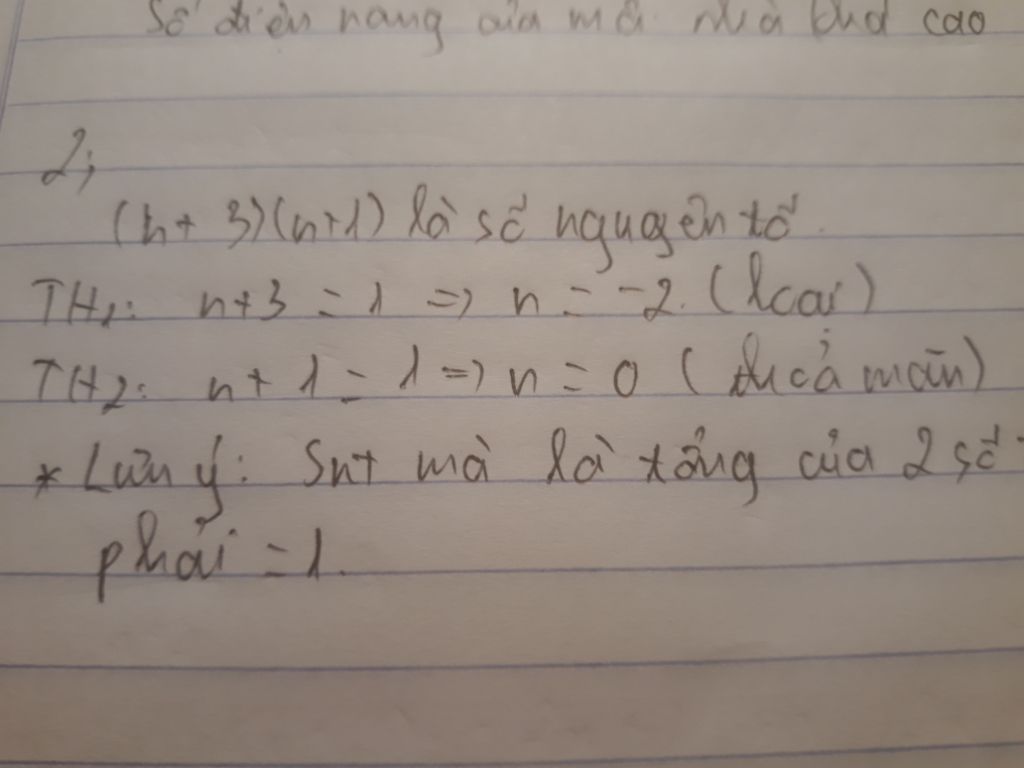 Số điện năng của mà nhà cao
2,
(n + 3)(n+1) là số nguyên tố.
TH1: n+3 = 1 => n = -2. (loại)
TH2: n + 1 = 1 => n = 0 (thỏa mãn)
* Lưu ý: Snt mà là tổng của 2 số
phải = 1.